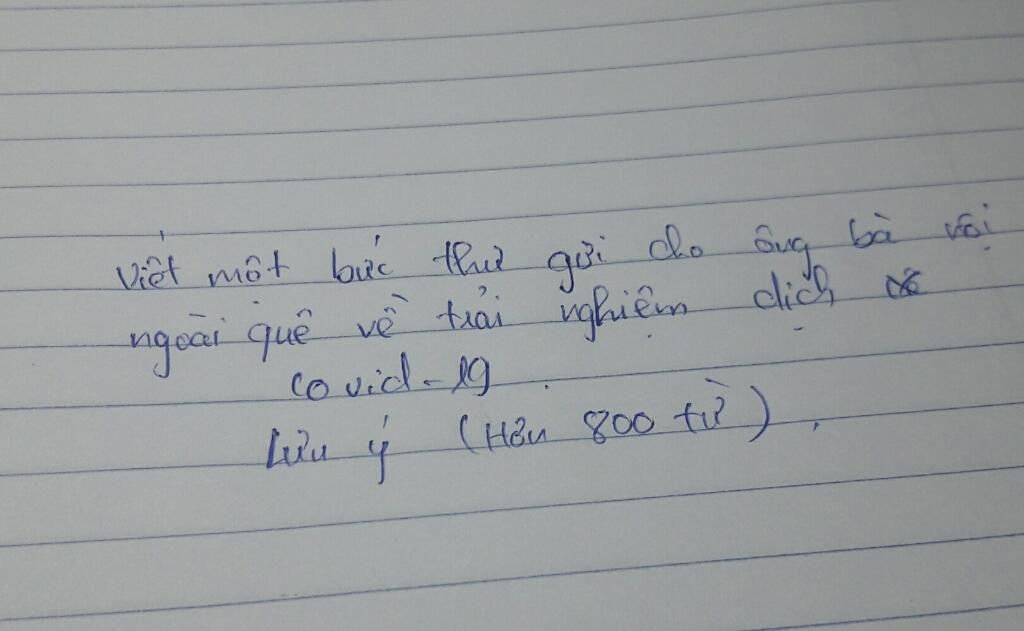 Viết một bức thư gửi cho ông bà
ngoài quê về trải nghiệm dịch
covid-19.
Lưu ý (Hơn 800 từ).